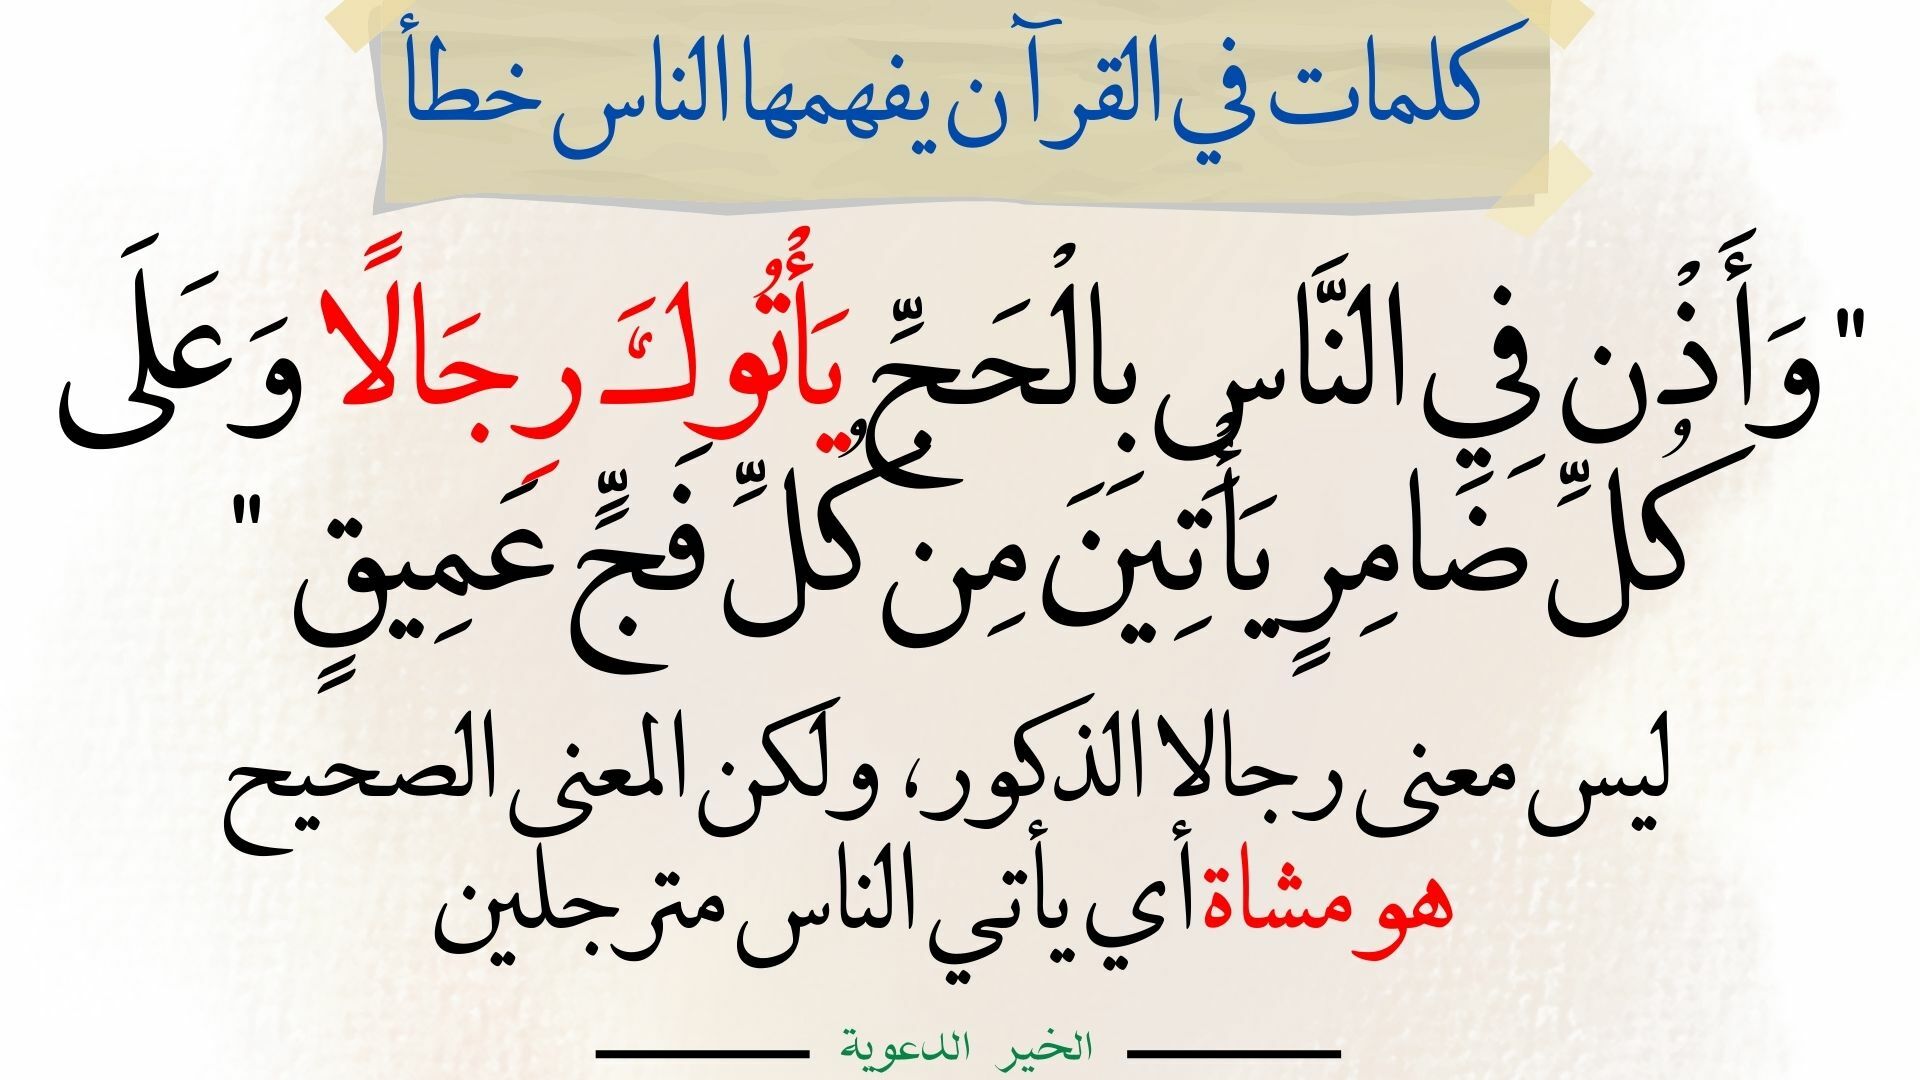 كلمات في القرآن يفهمها الناس خطأ
"وَأَذِّن فِي النَّاسِ بِالْحَجِّ يَأْتُوكَ رِجَالًا وَعَلَى
كُلِّ ضَامِرٍ يَأْتِينَ مِن كُلِّ فَجٍّ عَمِيقٍ "
ليس معنى رجالا الذكور، ولكن المعنى الصحيح
هو مشاة أي يأتي الناس مترجلين
الخير الدعوية